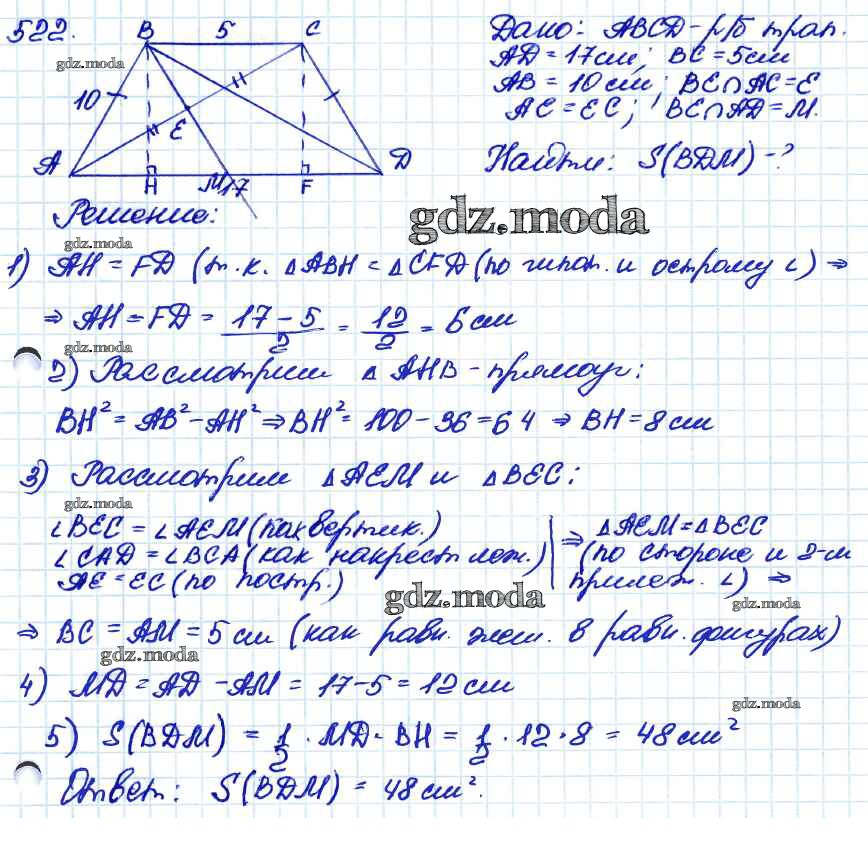 522. B 5 C Дано: ABCD - р/б трап.
gdz.moda AD = 17 см; BC = 5 см
10 E AB = 10 см; BE ∩ AC = E
AE = EC; BE ∩ AD = M.
A H M 17 F D Найти: S(BDM) - ?
Решение: gdz.moda
gdz.moda
1) AH = FD (т.к. △ABH = △CFD (по гипот. и острому ∠) ⇒
⇒ AH = FD = (17 - 5)/2 = 12/2 = 6 см
gdz.moda
2) Рассмотрим △ AHB - прямоуг:
BH² = AB² - AH² ⇒ BH² = 100 - 36 = 64 ⇒ BH = 8 см
3) Рассмотрим △AEM и △BEC:
gdz.moda
∠BEC = ∠AEM (как вертик.) ⇒ △AEM = △BEC
∠CAD = ∠BCA (как накрест леж.) (по стороне и 2-м
AE = EC (по постр.) прилеж. ∠) ⇒
gdz.moda gdz.moda
⇒ BC = AM = 5 см (как равн. элем. в равн. фигурах)
gdz.moda
4) MD = AD - AM = 17 - 5 = 12 см
gdz.moda
5) S(BDM) = 1/2 · MD · BH = 1/2 · 12 · 8 = 48 см²
Ответ: S(BDM) = 48 см².